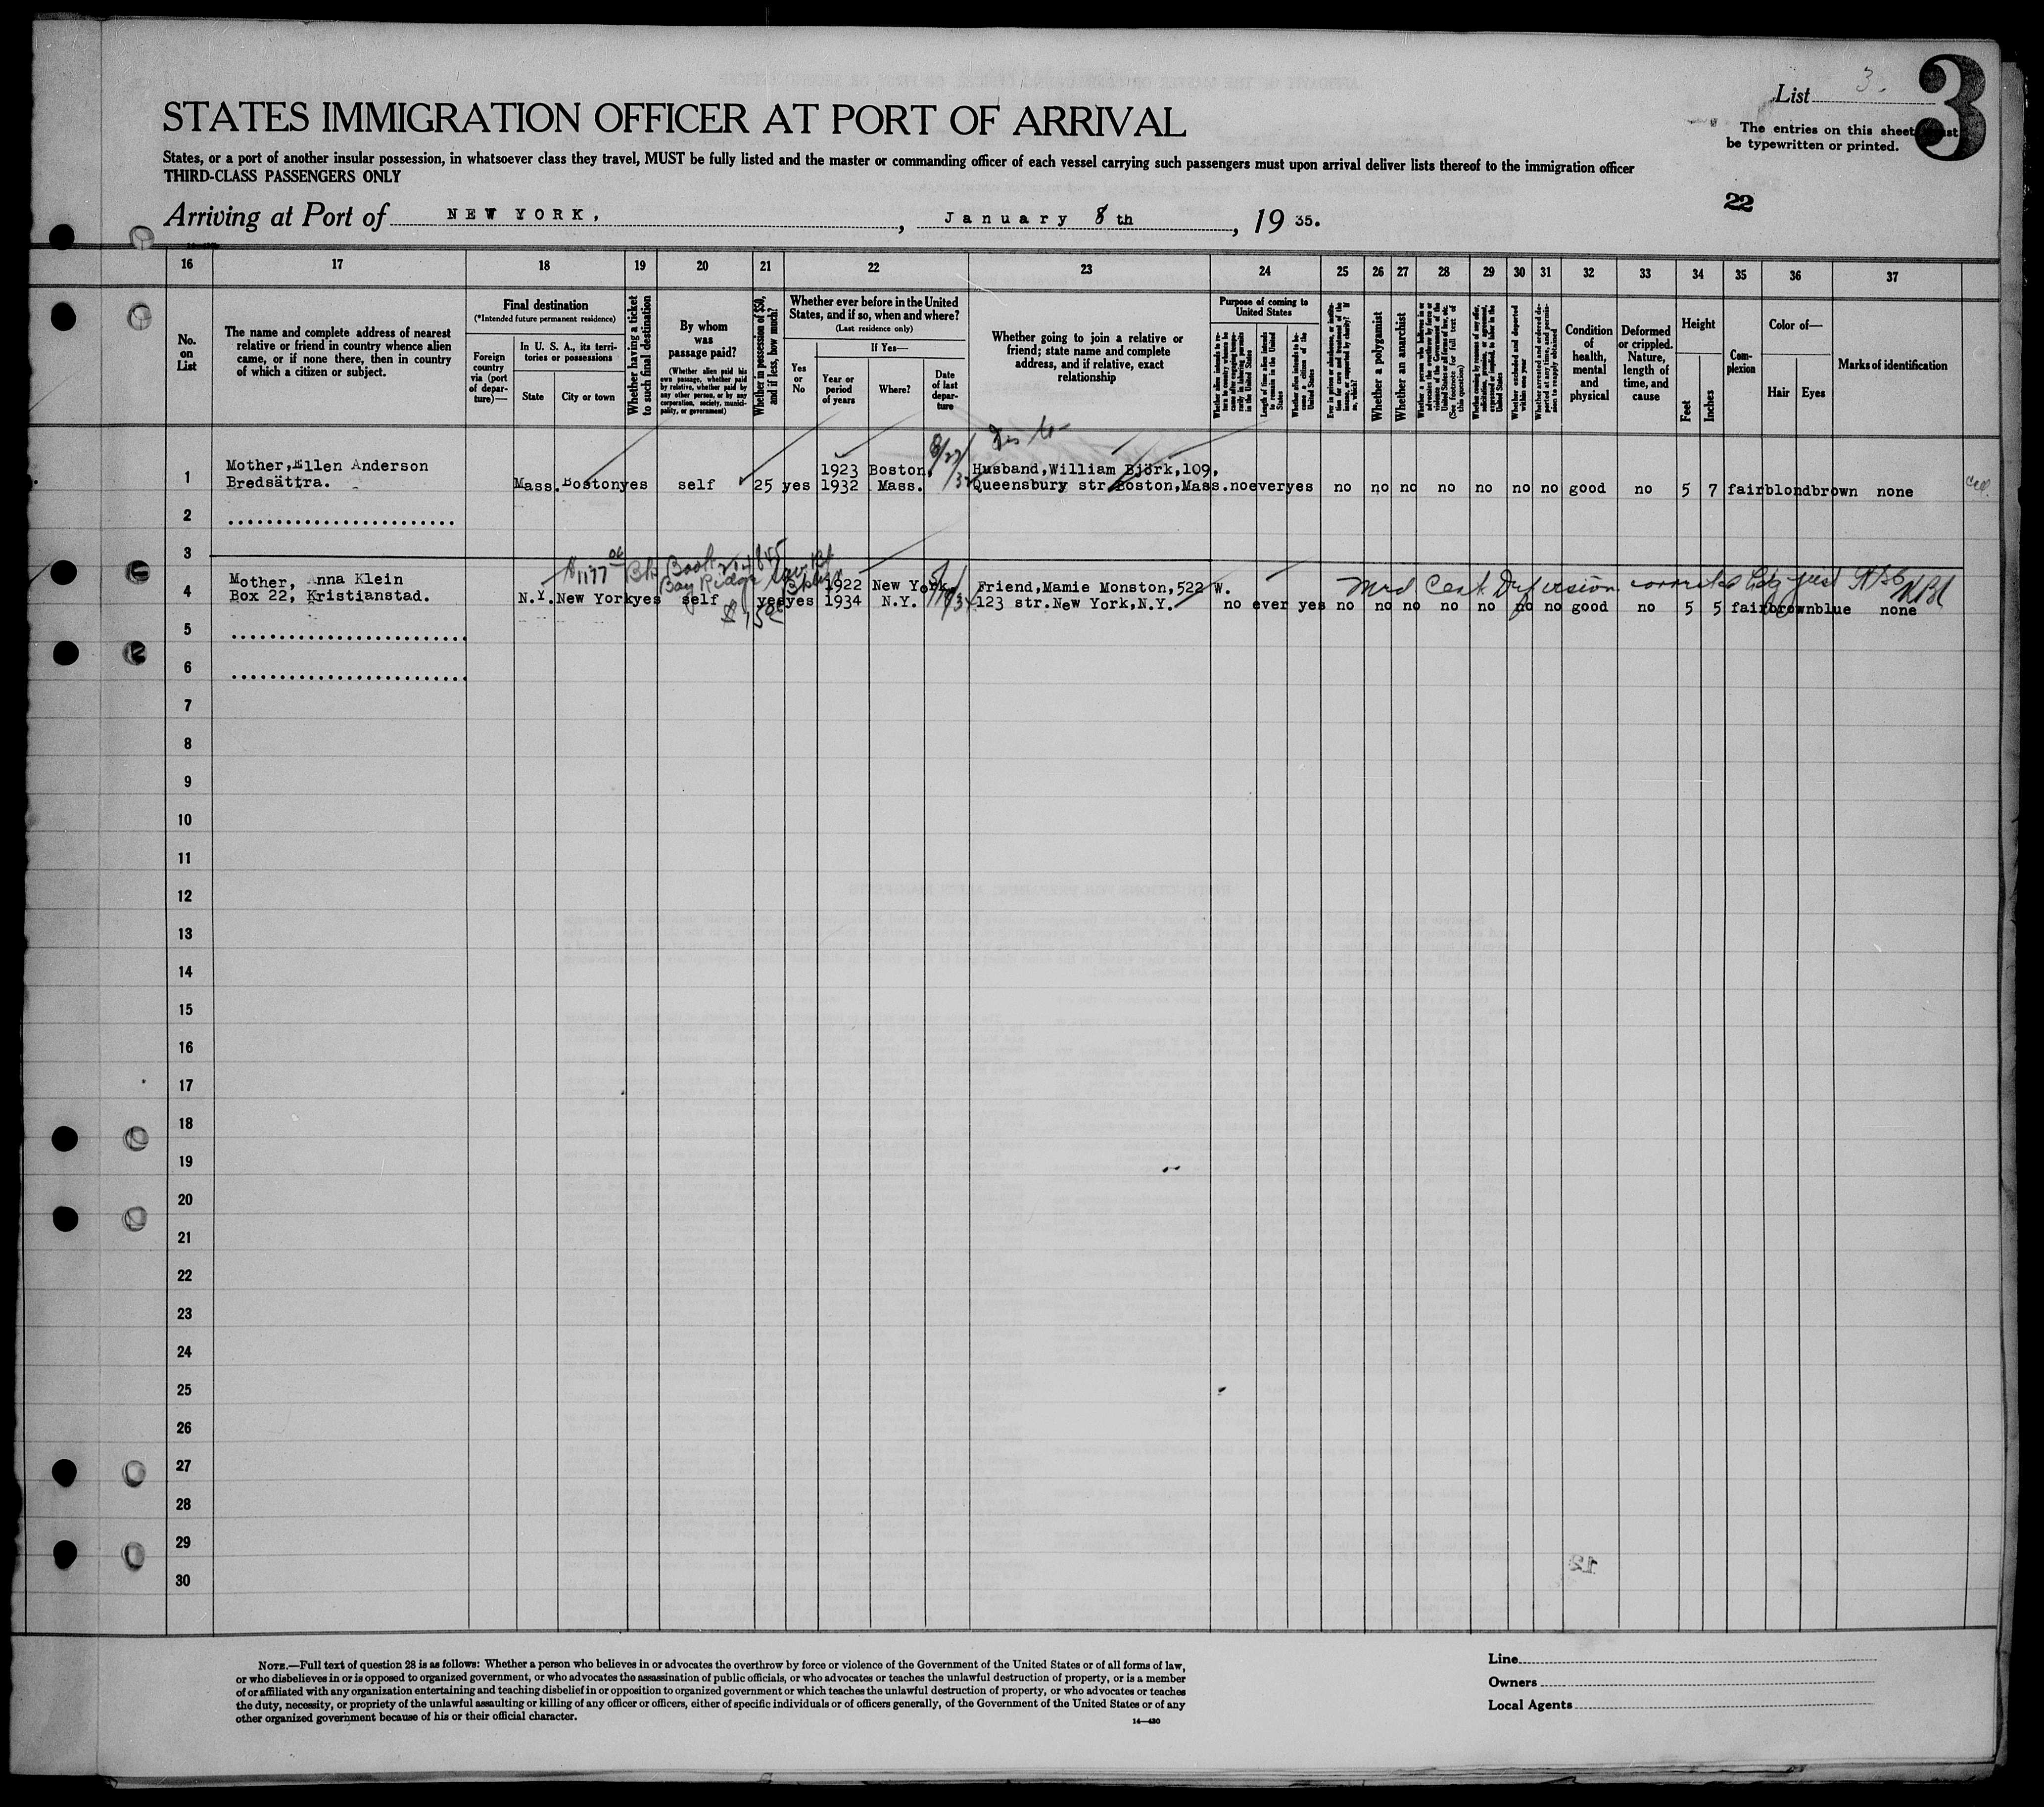 List 3.
3
STATES IMMIGRATION OFFICER AT PORT OF ARRIVAL
The entries on this sheet must
be typewritten or printed.
States, or a port of another insular possession, in whatsoever class they travel, MUST be fully listed and the master or commanding officer of each vessel carrying such passengers must upon arrival deliver lists thereof to the immigration officer
THIRD-CLASS PASSENGERS ONLY
22
Arriving at Port of NEW YORK, , January 8th , 19 35.
16 17 18 19 20 21 22 23 24 25 26 27 28 29 30 31 32 33 34 35 36 37
No.
on
List
The name and complete address of nearest
relative or friend in country whence alien
came, or if none there, then in country
of which a citizen or subject.
Final destination
(*Intended future permanent residence)
Foreign
country
via (port
of depar-
ture)—
In U. S. A., its terri-
tories or possessions
State
City or town
Whether having a ticket
to such final destination
By whom
was
passage paid?
(Whether alien paid his
own passage, whether paid
by relative, whether paid by
any other person, or by any
corporation, society, munici-
pality, or government)
Whether in possession of $50,
and if less, how much?
Whether ever before in the United
States, and if so, when and where?
(Last residence only)
Yes
or
No
If Yes—
Year or
period
of years
Where?
Date
of last
depar-
ture
Whether going to join a relative or
friend; state name and complete
address, and if relative, exact
relationship
Purpose of coming to
United States
Whether alien intends to re-
turn to country whence he
came after engaging tempo-
rarily in laboring pursuits
in the United States
Length of time alien intends
to remain in the United
States
Whether alien intends to be-
come a citizen of the
United States
Ever in prison or almshouse, or institu-
tion for care and treatment of the
insane, or supported by charity? If
so, which?
Whether a polygamist
Whether an anarchist
Whether a person who believes in or
advocates the overthrow by force or
violence of the Government of the
United States or all forms of law, etc.
(See footnote for full text of
this question)
Whether coming by reason of any offer,
solicitation, promise, or agreement,
expressed or implied, to labor in the
United States
Whether excluded and deported
within one year
Whether arrested and ordered de-
ported at any time, and permis-
sion to reapply obtained
Condition
of
health,
mental
and
physical
Deformed
or crippled.
Nature,
length of
time, and
cause
Height
Feet
Inches
Com-
plexion
Color of—
Hair
Eyes
Marks of identification
8/27/32
1 Mother, Ellen Anderson 1923 Boston, Husband, William Björk, 109,
Bredsättra. Mass. Boston yes self 25 yes 1932 Mass. Queensbury str. Boston, Mass. no ever yes no no no no no no no good no 5 7 fair blond brown none
2
3
$1177 Bk Book
Bay Ridge
4 Mother, Anna Klein 1922 New York Friend, Mamie Monston, 522 W.
Box 22, Kristianstad. N.Y. New York yes self yes yes 1934 N.Y. 123 str. New York, N.Y. no ever yes no no no no no no no good no 5 5 fair brown blue none
5
6
7
8
9
10
11
12
13
14
15
16
17
18
19
20
21
22
23
24
25
26
27
28
29
30
NOTE.—Full text of question 28 is as follows: Whether a person who believes in or advocates the overthrow by force or violence of the Government of the United States or of all forms of law,
or who disbelieves in or is opposed to organized government, or who advocates the assassination of public officials, or who advocates or teaches the unlawful destruction of property, or is a member
of or affiliated with any organization entertaining and teaching disbelief in or opposition to organized government or which teaches the unlawful destruction of property, or who advocates or teaches
the duty, necessity, or propriety of the unlawful assaulting or killing of any officer or officers, either of specific individuals or of officers generally, of the Government of the United States or of any
other organized government because of his or their official character.
14—430
Line
Owners
Local Agents